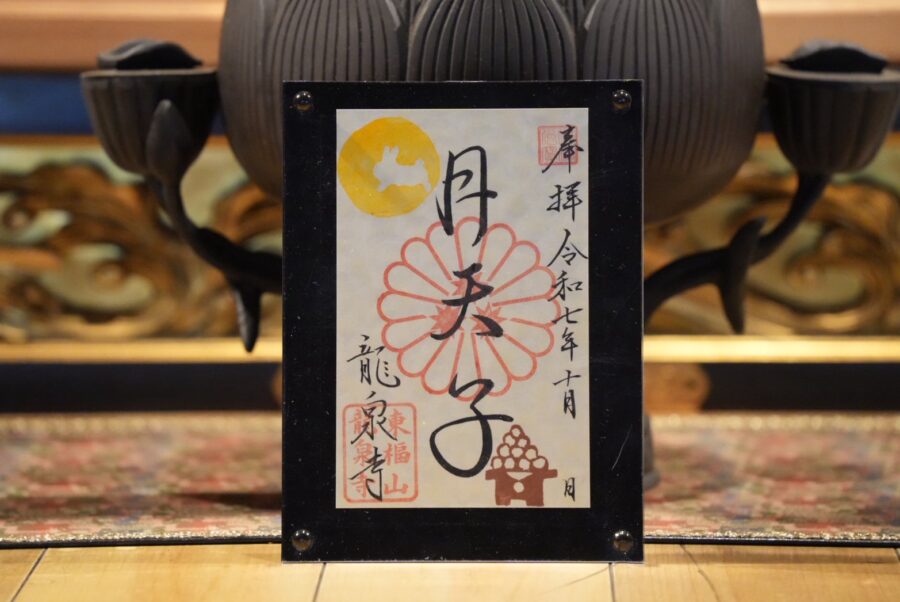 奉拝 令和七年十月 日
月天子
龍泉寺
東樞山
龍泉寺